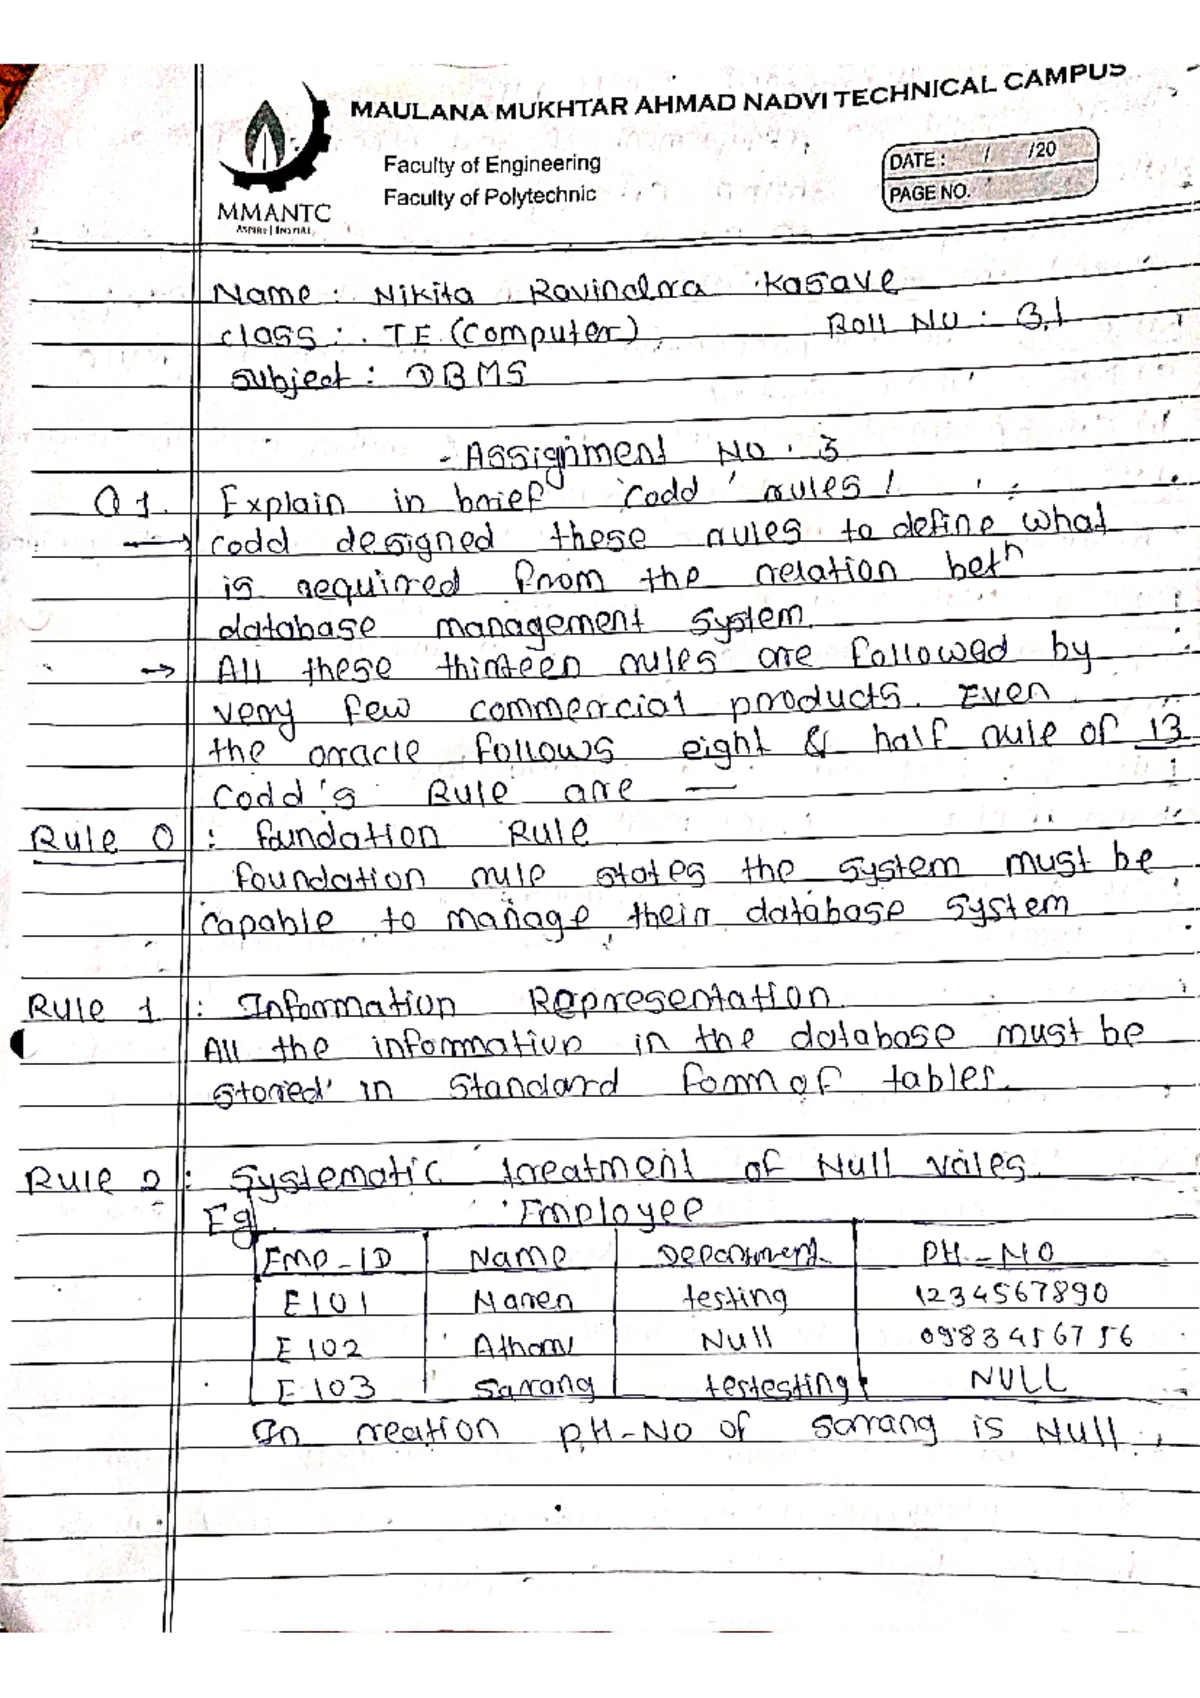 MAULANA MUKHTAR AHMAD NADVI TECHNICAL CAMPUS
Faculty of Engineering
Faculty of Polytechnic
DATE : / /20
PAGE NO.
MMANTC
Name : Nikita Ravindra Kasave
class : TE (Computer) Roll No : 31
subject : DBMS
Assignment No. 3
Q1. Explain in brief 'codd' rules !
→ codd designed these rules to define what
is required from the relation betn
database management system.
→ All these thirteen rules are followed by
very few commercial products. Even
the oracle follows eight & half rule of 13
Codd's Rule are —
Rule 0 : foundation Rule
foundation rule states the system must be
capable to manage their database system
Rule 1 : Information Representation
All the information in the database must be
stored in standard form of tables.
Rule 2 : Systematic treatment of Null vales
Eg. Employee
Emp-ID Name Department PH-NO
E101 Naren testing 1234567890
E102 Null
E103 Sarang testesting NULL
In reation PH-NO of Sarang is Null